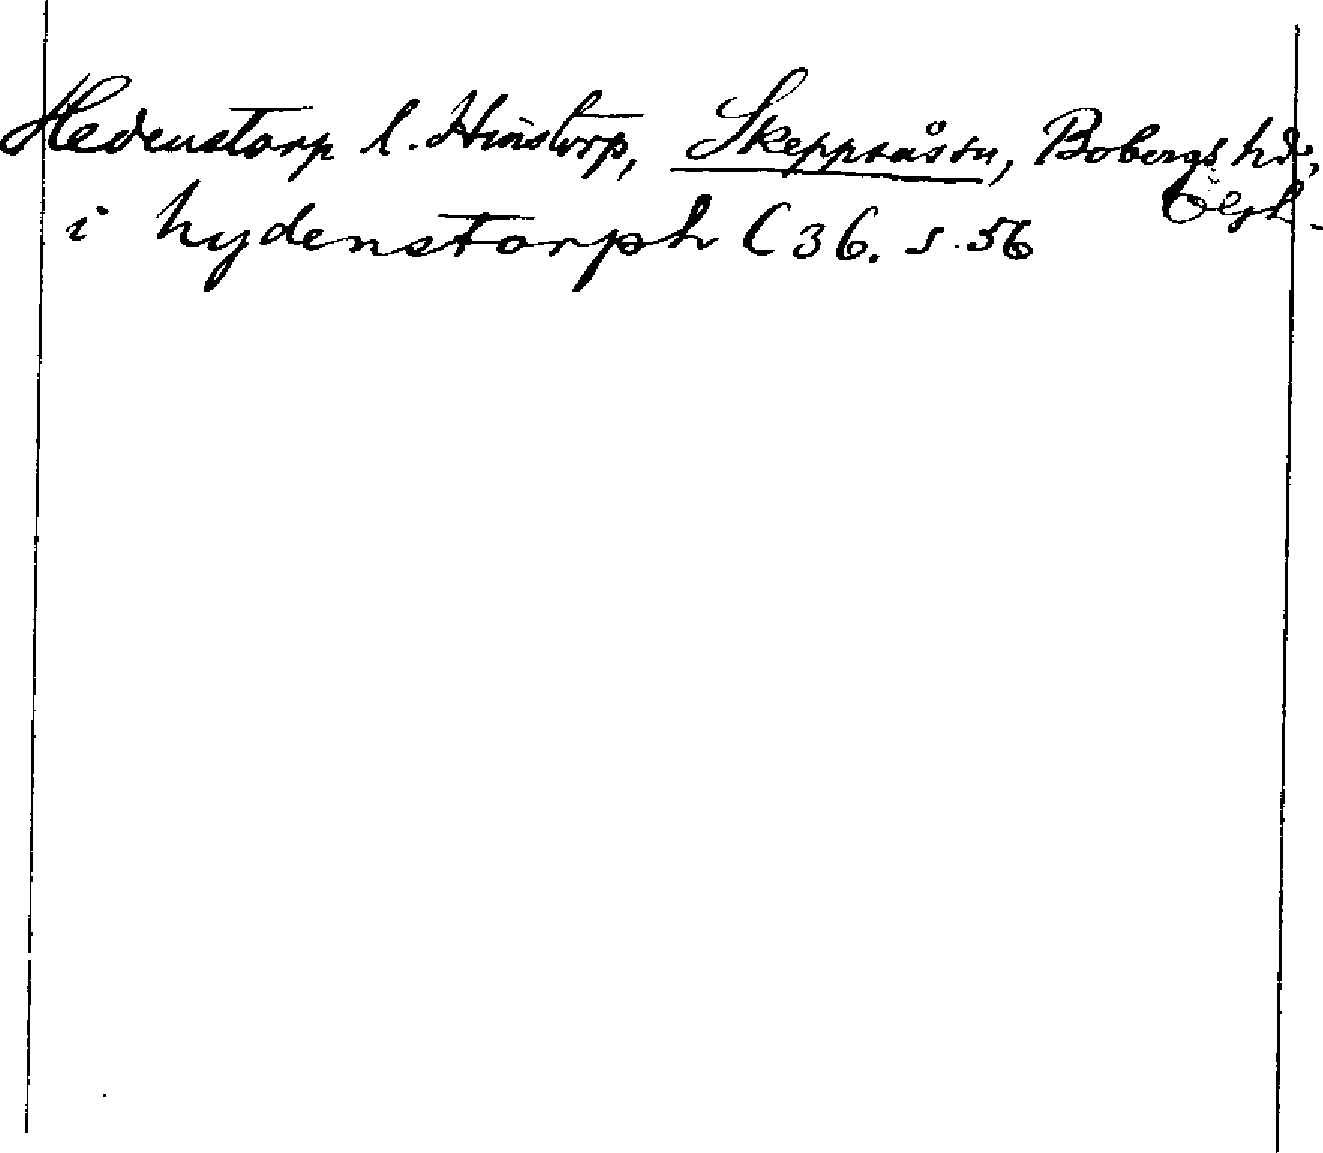 Hedenstorp l. Hinstorp, Skeppsåsn, Bobergs hd,
Ögl.
i hydenstorph C 36. s. 56